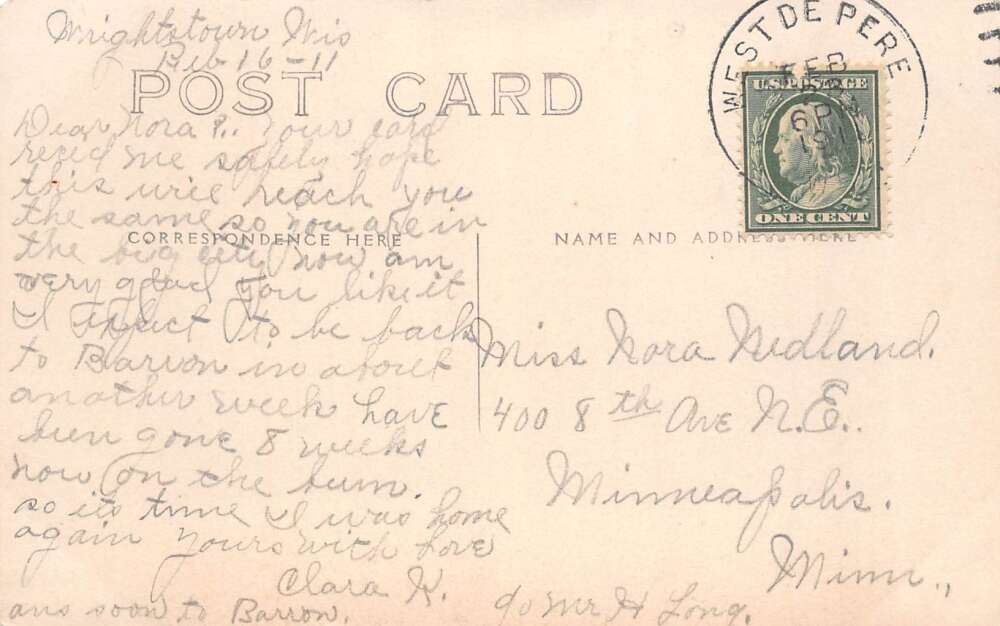 Wrightstown Wis
Feb 16-11
POST CARD
WEST DE PERE
FEB
6 P
191
U.S. POSTAGE
ONE CENT
Dear Nora P.. Your card
recied me safely hope
this will reach you
the same so you are in
CORRESPONDENCE HERE
the big city now am
very glad you like it
I expect to be back
to Barron in about
another week have
been gone 8 weeks
now on the bum.
so its time I was home
again yours with love
Clara K.
ans soon to Barron.
NAME AND ADDRESS HERE
Miss Nora Nedland.
400 8th Ave N.E..
Minneapolis.
Minn.,
c/o Mr H Long.